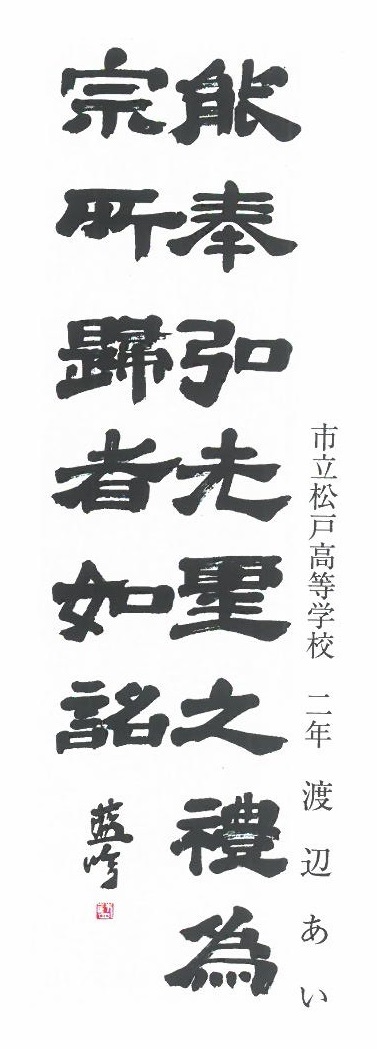 市立松戸高等学校　二年　渡辺あい
能奉弘先聖之禮為
宗所歸者如詔
藍吟